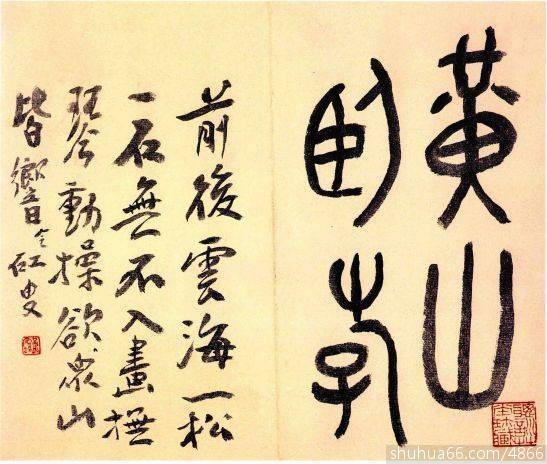 黃山
臥斿
前後雲海一松
一石無不入畫撫
琴動操欲衆山
皆響 令 虹叟
shuhua66.com/4866